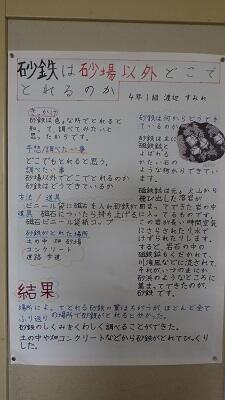 砂鉄は砂場以外どこで
とれるのか
4年1組 渡辺 すみれ
きっかけ
砂鉄は色々な所でとれると
知って、調べてみたいと
思ったからです。
予想/調べたい事
どこでもとれると思う。
調べたい事
砂場以外でどこでとれるのか
砂鉄はどうてできているか
方法/道具
ビニール袋に磁石を入れ砂鉄が
道具 磁石についたら持ち上げる
磁石ビニール袋紙コップ
砂鉄がとれた場所
土の中 畑 砂場
コンクリート
道路 歩道
砂鉄は何からどうでき
ているのか
砂鉄は主に
磁鉄鉱と
よばれる
かたい石の
ような物からできてい
ます。
磁鉄鉱は元々火山から
飛び出した溶岩が
冷えてできた岩の中
に入ってるものです。
この岩が長い時間空気
にさらされたり水で
けずられたりします。
すると、岩石の中の
磁鉄鉱もくだかれて、
川や海などに流されて、
それがいつのまにか
砂浜のようなところに
集まってできたのが、
砂鉄です。
結果
場所によってとれる砂鉄の量はちがうが、ほとんど全て
の場所で砂鉄がとれると分かった。
ふり返り
砂鉄のしくみをくわしく調べることができた。
土の中や畑コンクリートなどから砂鉄がとれてびっくり
した。